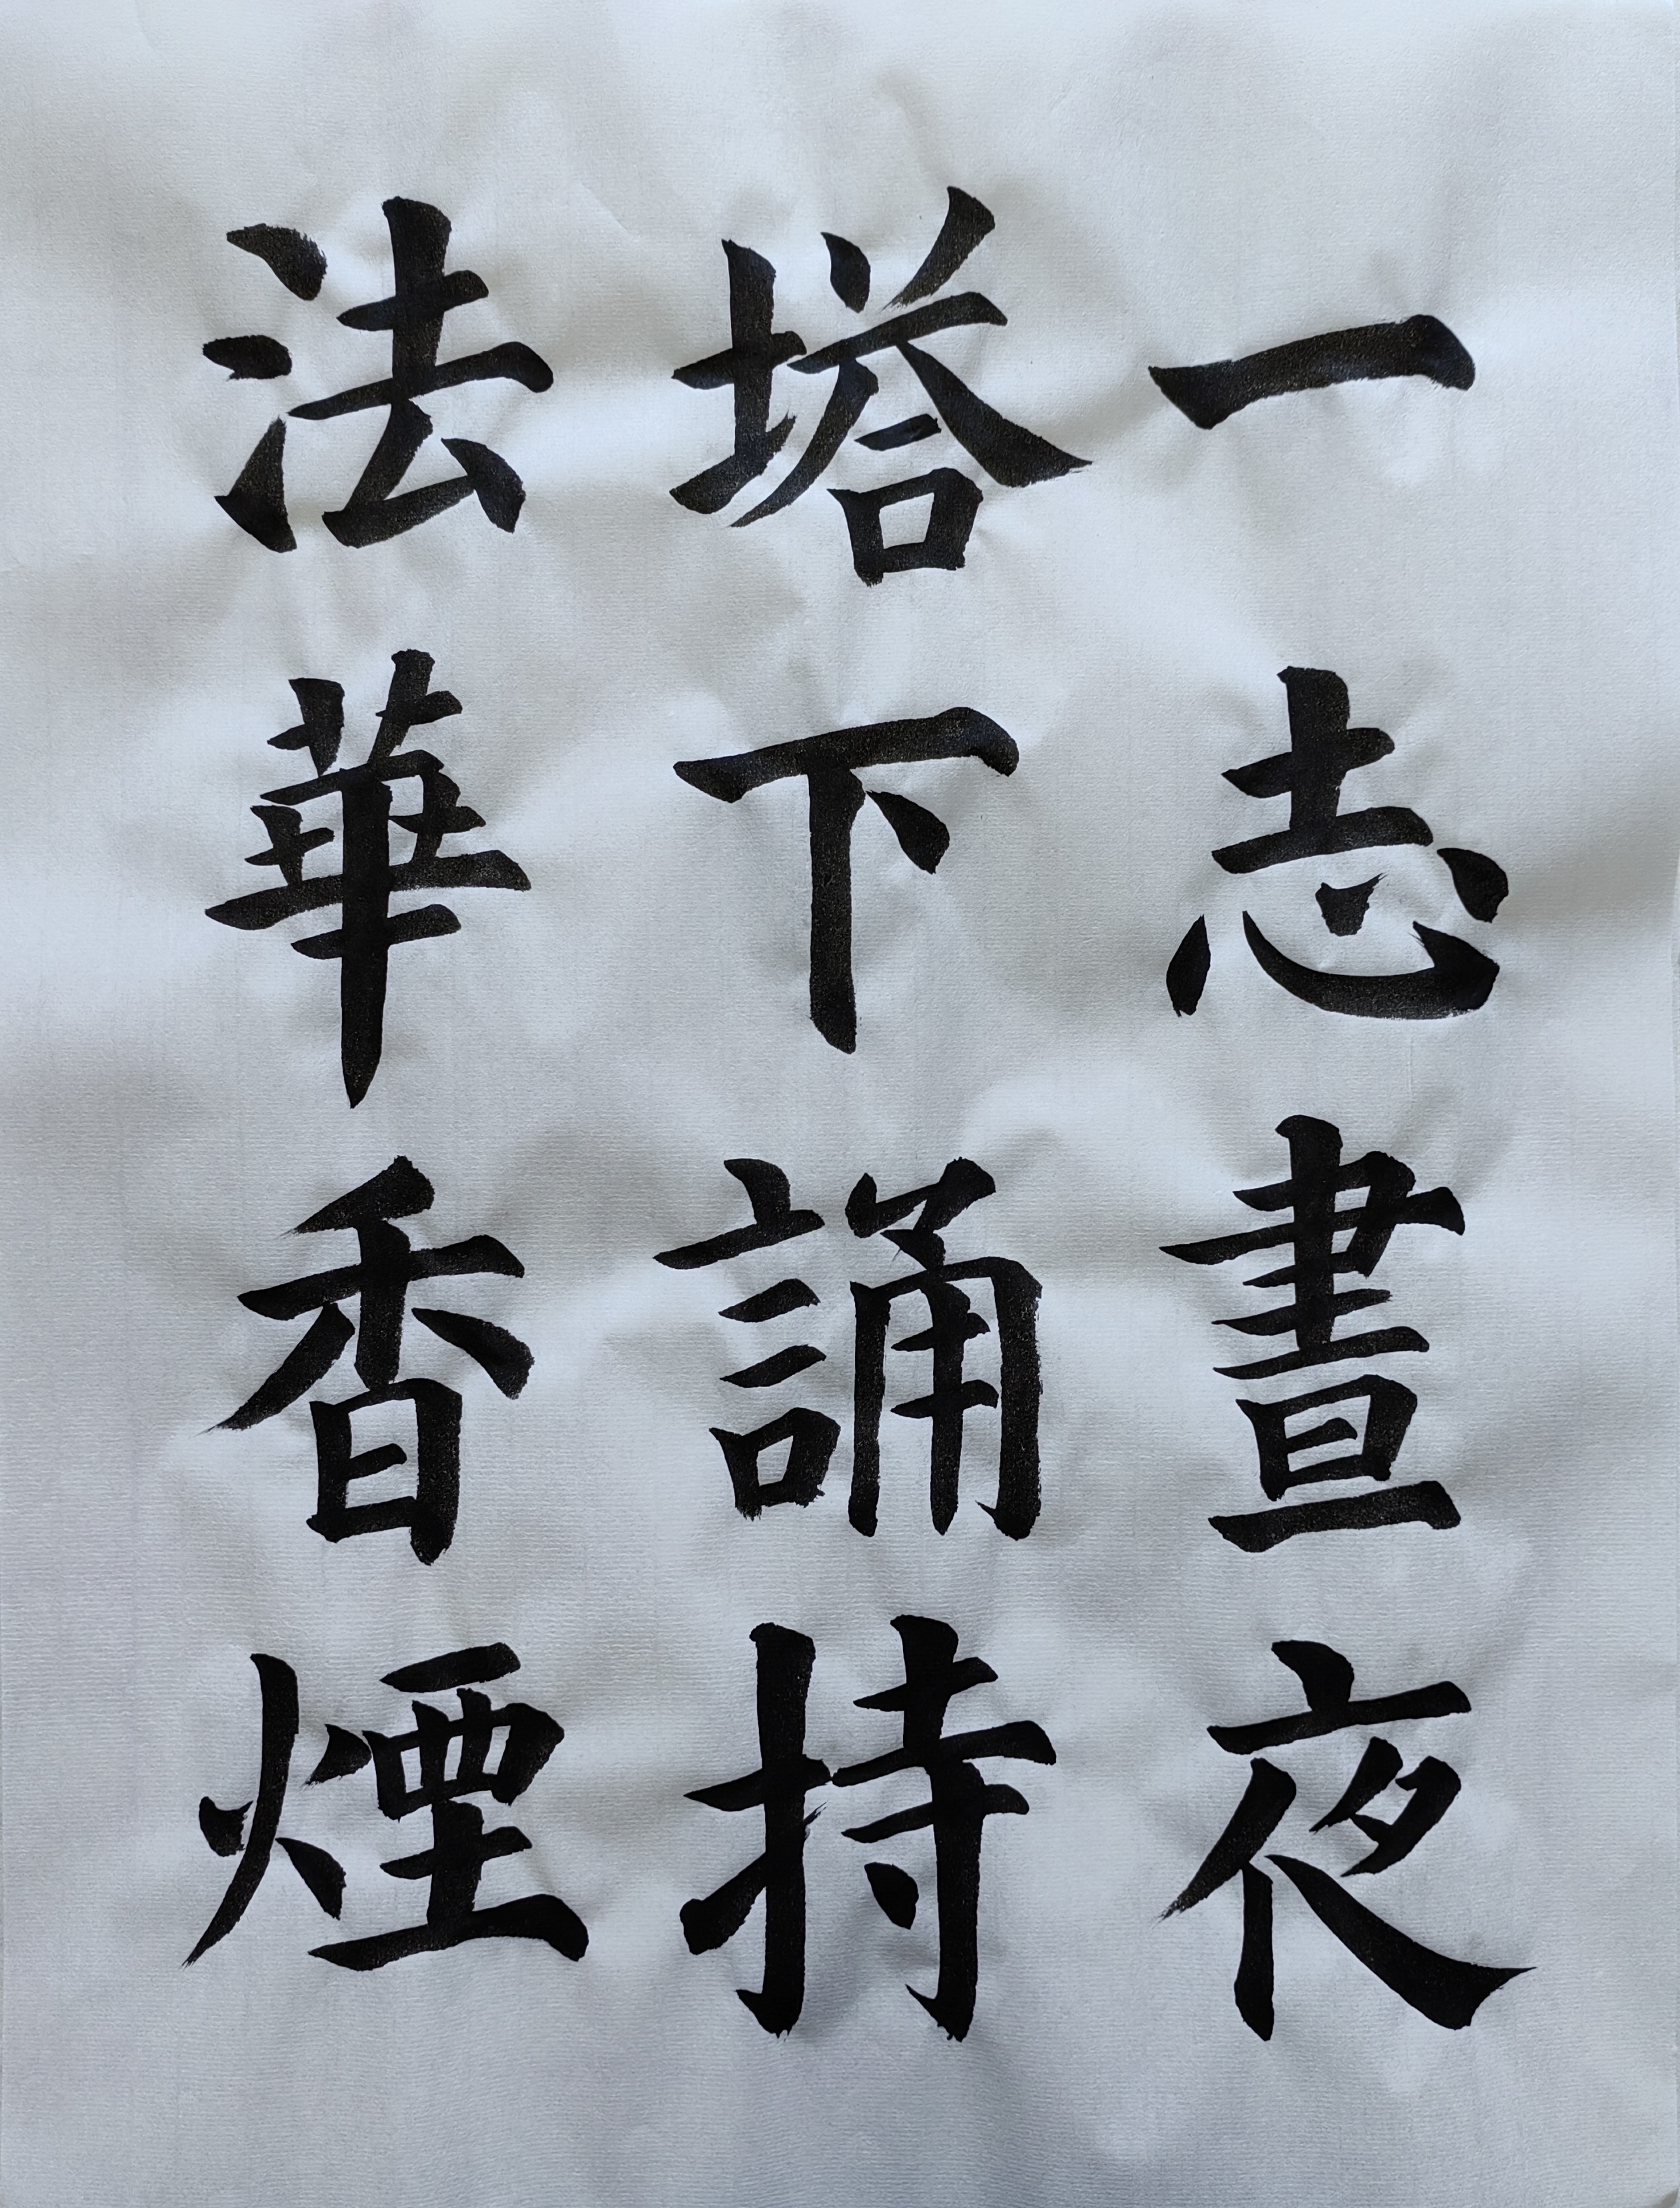 一志晝夜
塔下誦持
法華香煙